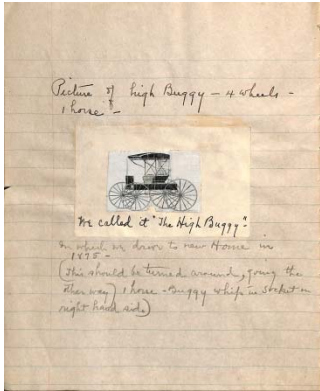 Picture of high Buggy - 4 wheels -
1 horse -
We called it "The High Buggy"-
In which we drove to new Home in
1875 -
(This should be turned around, going the
other way) 1 horse - Buggy whip in socket on
right hand side)